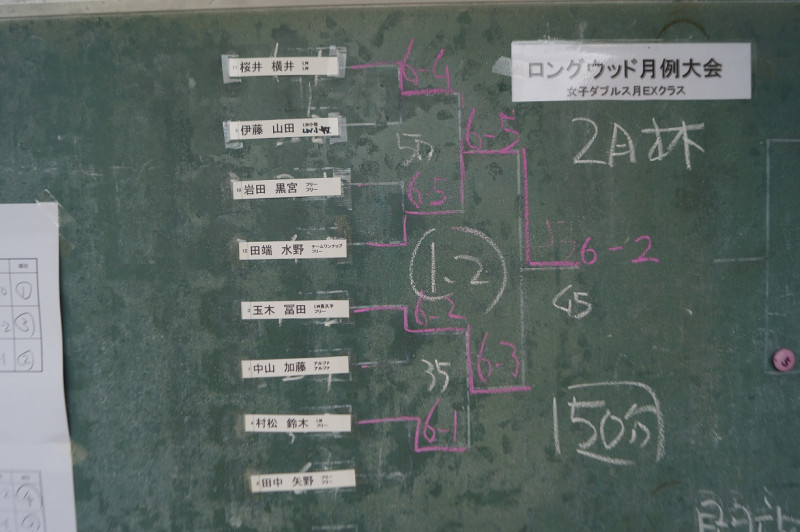 ロングウッド月例大会
女子ダブルス月EXクラス
2月杯
桜井 横井
6-4
伊藤 山田
6-5
50
岩田 黒宮 フリー
フリー
6-5
田端 水野 チームワンナップ
フリー
1.2
6-2
玉木 冨田
フリー
6-2
45
中山 加藤 アルファ
アルファ
35
6-3
村松 鈴木
フリー
6-1
150分
田中 矢野 フリー
フリー